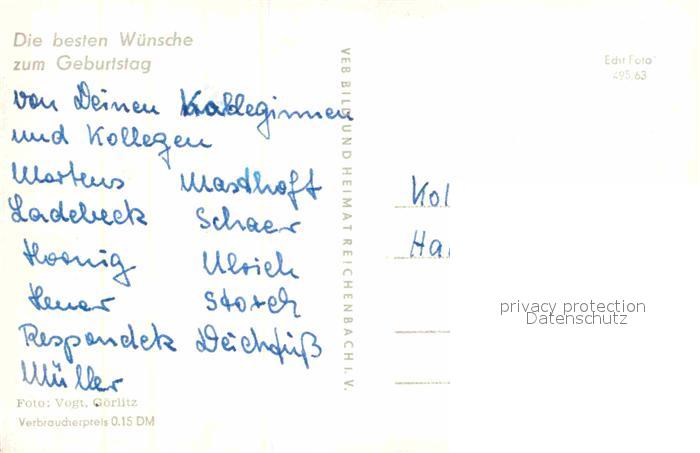 Die besten Wünsche
zum Geburtstag
von Deinen Kolleginnen
und Kollegen
Martens Masthoft
Ladebeck Schaer
Hoenig Ulrich
Henar Storch
Respondek Deichfuß
Müller
Foto: Vogt, Görlitz
Verbraucherpreis 0.15 DM
VEB BILD UND HEIMAT REICHENBACH I. V.
Echt Foto
495/63
Kol
Ha
privacy protection
Datenschutz